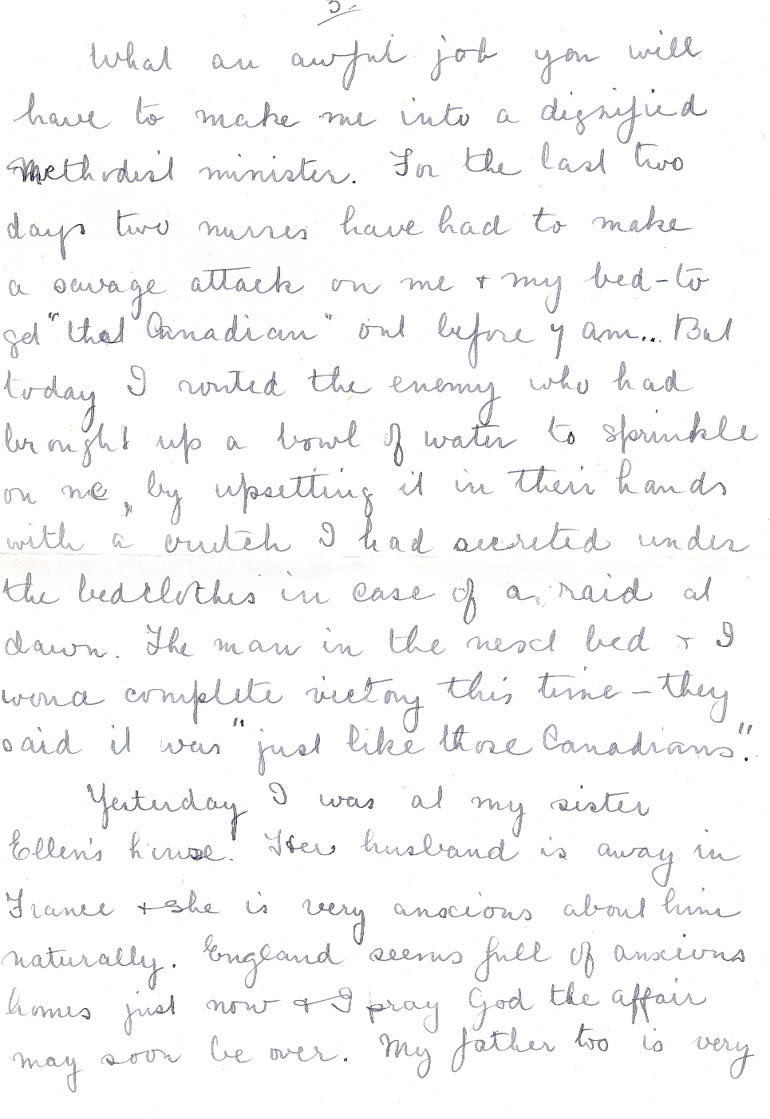 3.
What an awful job you will
have to make me into a dignified
Methodist minister. For the last two
days two nurses have had to make
a savage attack on me + my bed - to
get "that Canadian" out before 7 am... But
today I routed the enemy who had
brought up a bowl of water to sprinkle
on me, by upsetting it in their hands
with a crutch I had secreted under
the bedclothes in case of a raid at
dawn. The man in the next bed + I
won a complete victory this time - they
said it was "just like those Canadians".
Yesterday I was at my sister
Ellen's house. Her husband is away in
France + she is very anxious about him
naturally. England seems full of anxious
homes just now + I pray God the affair
may soon be over. My father too is very